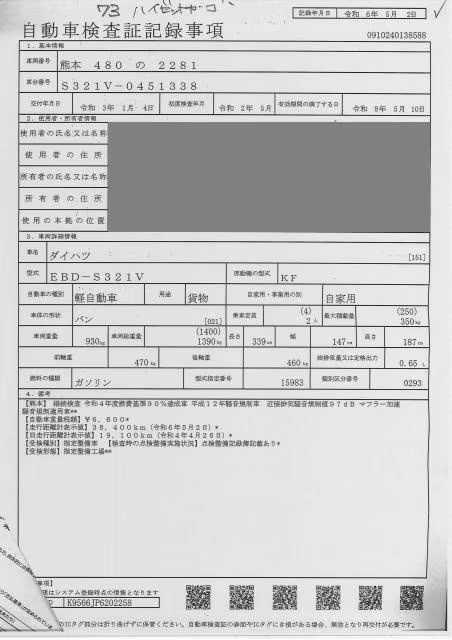 73 ハイゼットカーゴ
記録年月日 令和 6年 5月 2日
自動車検査証記録事項
0910240138588
1. 基本情報
車両番号 熊本 480 の 2281
車台番号 S321V-0451338
交付年月日 令和 3年 1月 4日 初度検査年月 令和 2年 5月 有効期間の満了する日 令和 8年 5月 10日
2. 使用者・所有者情報
使用者の氏名又は名称
使用者の住所
所有者の氏名又は名称
所有者の住所
使用の本拠の位置
3. 車両詳細情報
車名 ダイハツ [151]
型式 EBD-S321V 原動機の型式 KF
自動車の種別 軽自動車 用途 貨物 自家用・事業用の別 自家用
車体の形状 バン [021] 乗車定員 (4) 2人 最大積載量 (250) 350kg
車両重量 930kg 車両総重量 (1400) 1390kg 長さ 339cm 幅 147cm 高さ 187cm
前軸重 470kg 後軸重 460kg 総排気量又は定格出力 0.65 L
燃料の種類 ガソリン 型式指定番号 15983 類別区分番号 0293
4. 備考
【熊本】 継続検査 令和4年度燃費基準90%達成車 平成12年騒音規制車 近接排気騒音規制値97dB マフラー加速
騒音規制適用車**
【自動車重量税額】¥6,600*
【走行距離計表示値】38,400km(令和6年5月2日)*
【旧走行距離計表示値】19,100km(令和4年4月26日)*
【受検種別】指定整備車 【検査時の点検整備実施状況】点検整備記録簿記載あり*
【受検形態】指定整備工場**
事項】
項はシステム登録時点の情報となります
D K9566JP6202258
のICタグ部分は折り曲げずに保管ください。自動車検査証の券面やICタグに き損がある場合、無効となり再交付が必要です。